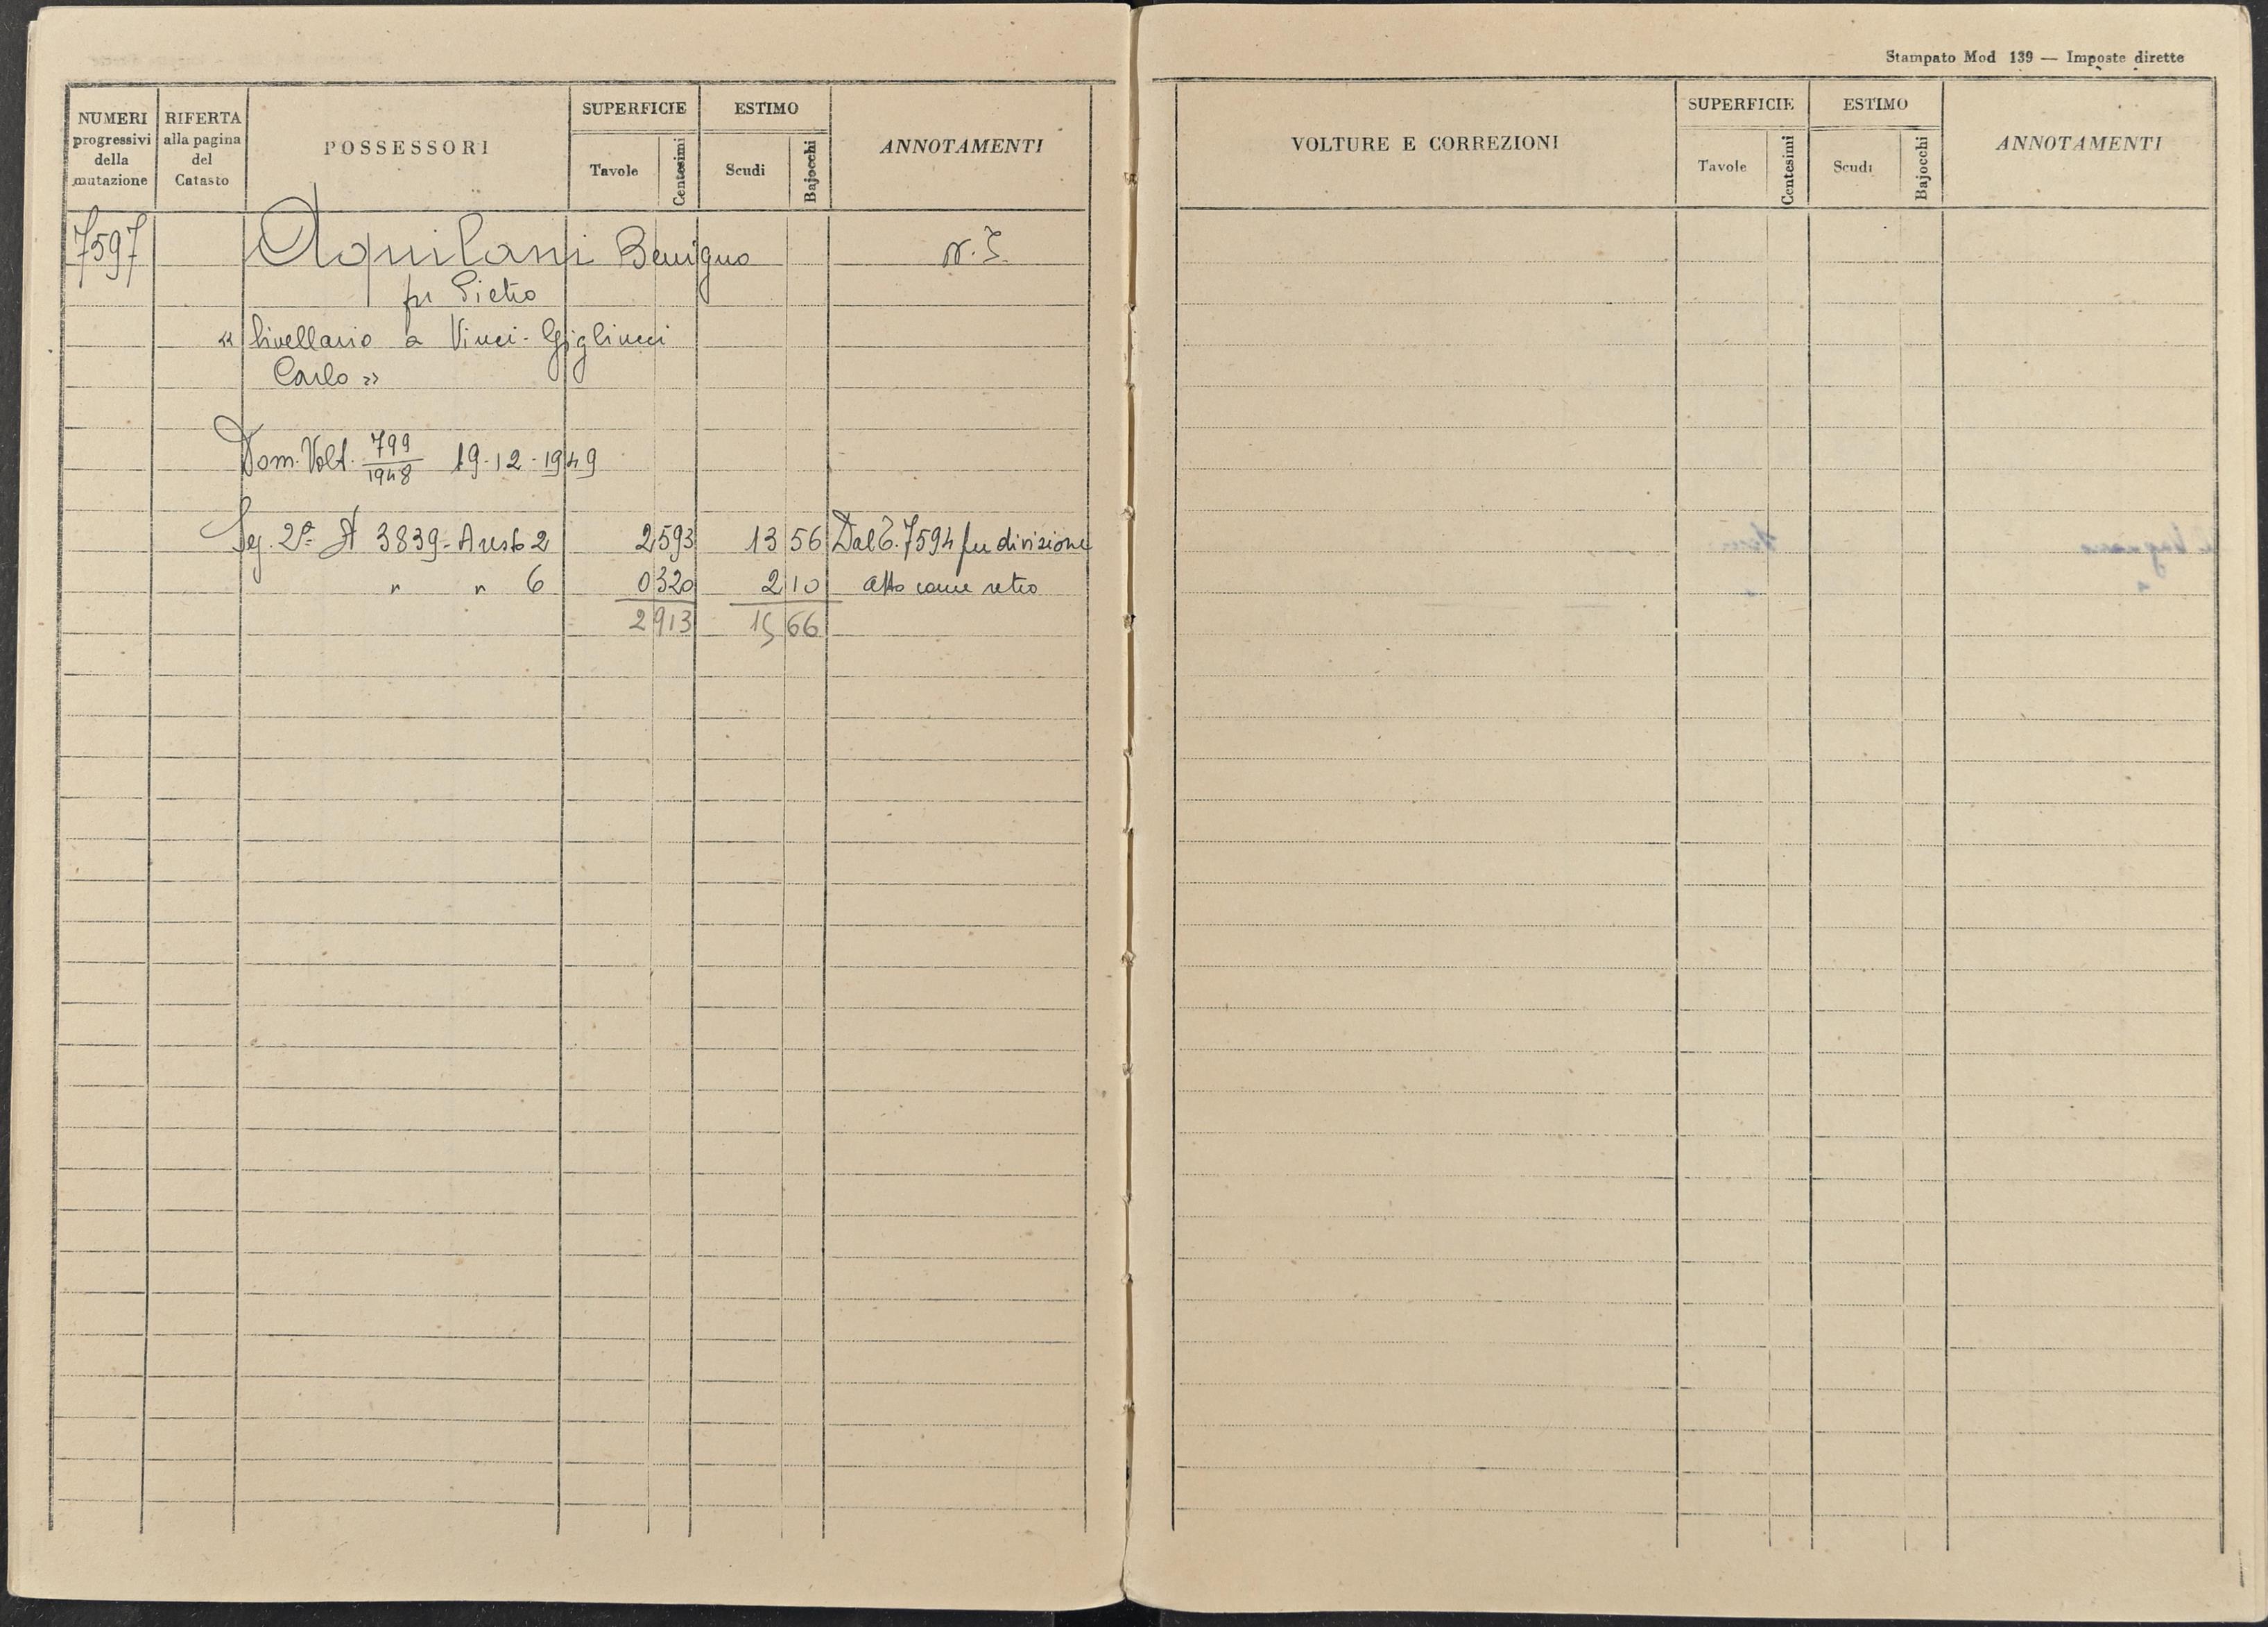 Stampato Mod 139 — Imposte dirette
NUMERI progressivi della mutazione
RIFERTA alla pagina del Catasto
POSSESSORI
SUPERFICIE
Tavole
Centesimi
ESTIMO
Scudi
Bajocchi
ANNOTAMENTI
7597 Aquilani Benigno
fu Pietro
« livellario a Vinci-Gigliucci
Carlo »
Dom. Volt. 799/1948 19-12-1949
Seg. 2ª 3839 - A resto 2 2 593 13 56 Dal 7594 per divisione
" " 6 0 320 2 10 atto come retro
2 913 15 66
VOLTURE E CORREZIONI
SUPERFICIE
Tavole
Centesimi
ESTIMO
Scudi
Bajocchi
ANNOTAMENTI